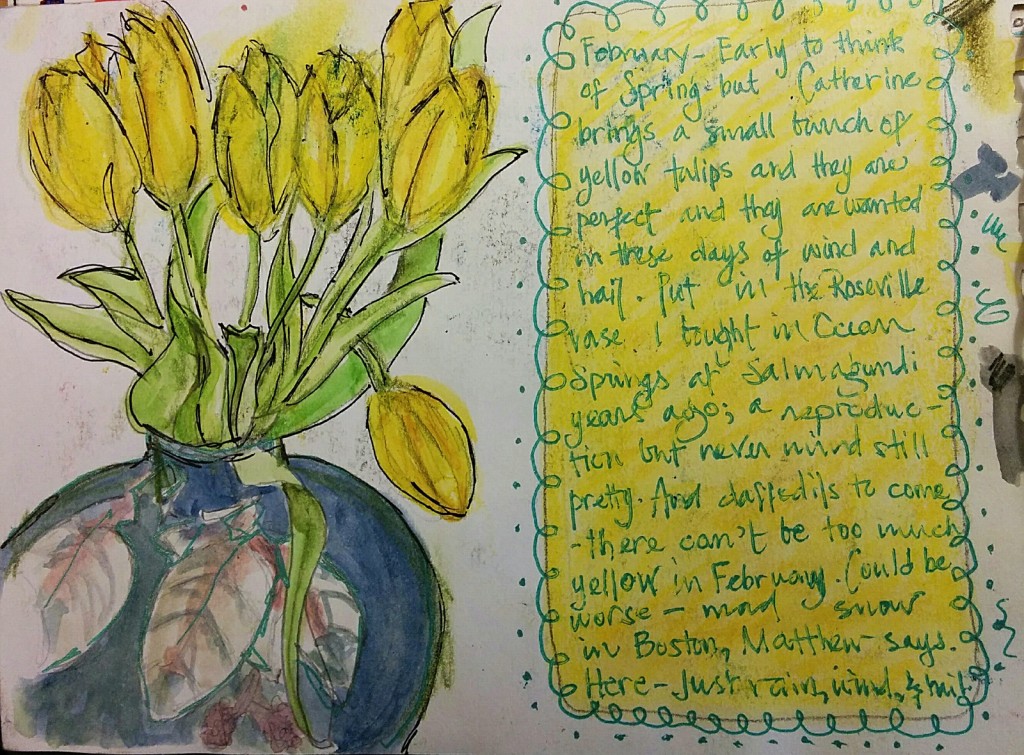 February - Early to think
of Spring but Catherine
brings a small bunch of
yellow tulips and they are
perfect and they are wanted
in these days of wind and
hail. Put in the Roseville
vase I bought in Ocean
Springs at Salmagundi
years ago; a reproduc-
tion but never mind still
pretty. And daffodils to come
- there can't be too much
yellow in February. Could be
worse - mad snow
in Boston, Matthew says.
Here - Just rain, wind, & hail